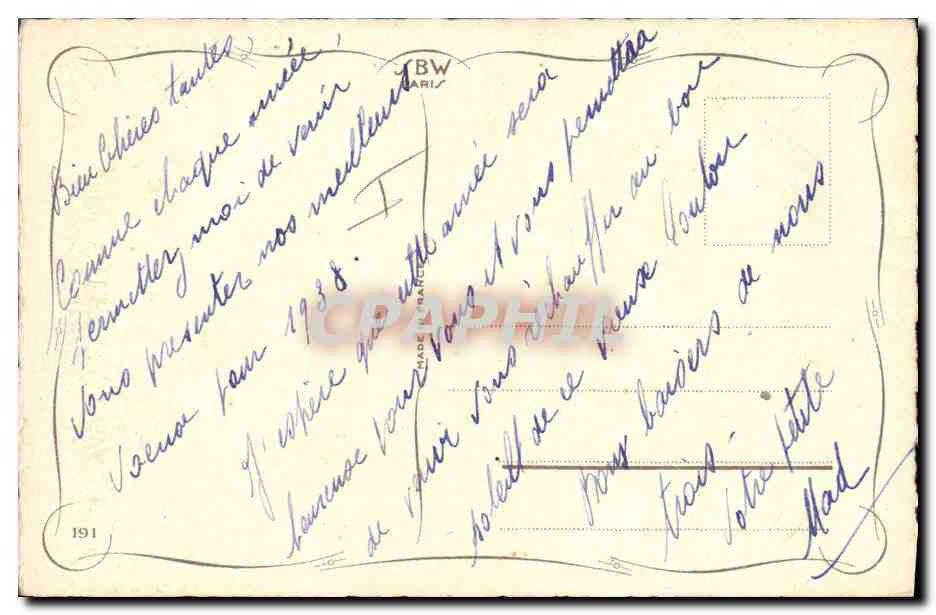 JBW
PARIS
Bien Chères tantes,
Comme chaque année,
permettez moi de venir
vous presenter nos meilleurs
voeux pour 1938.
I
J'espère que cette année sera
heureuse pour vous et vous permettra
de venir vous réchauffer au bon
soleil de ce vieux Toulon
Bons baisers de nous
trois.
Votre petite
Mad
MADE IN FRANCE
CPAPHIL
191